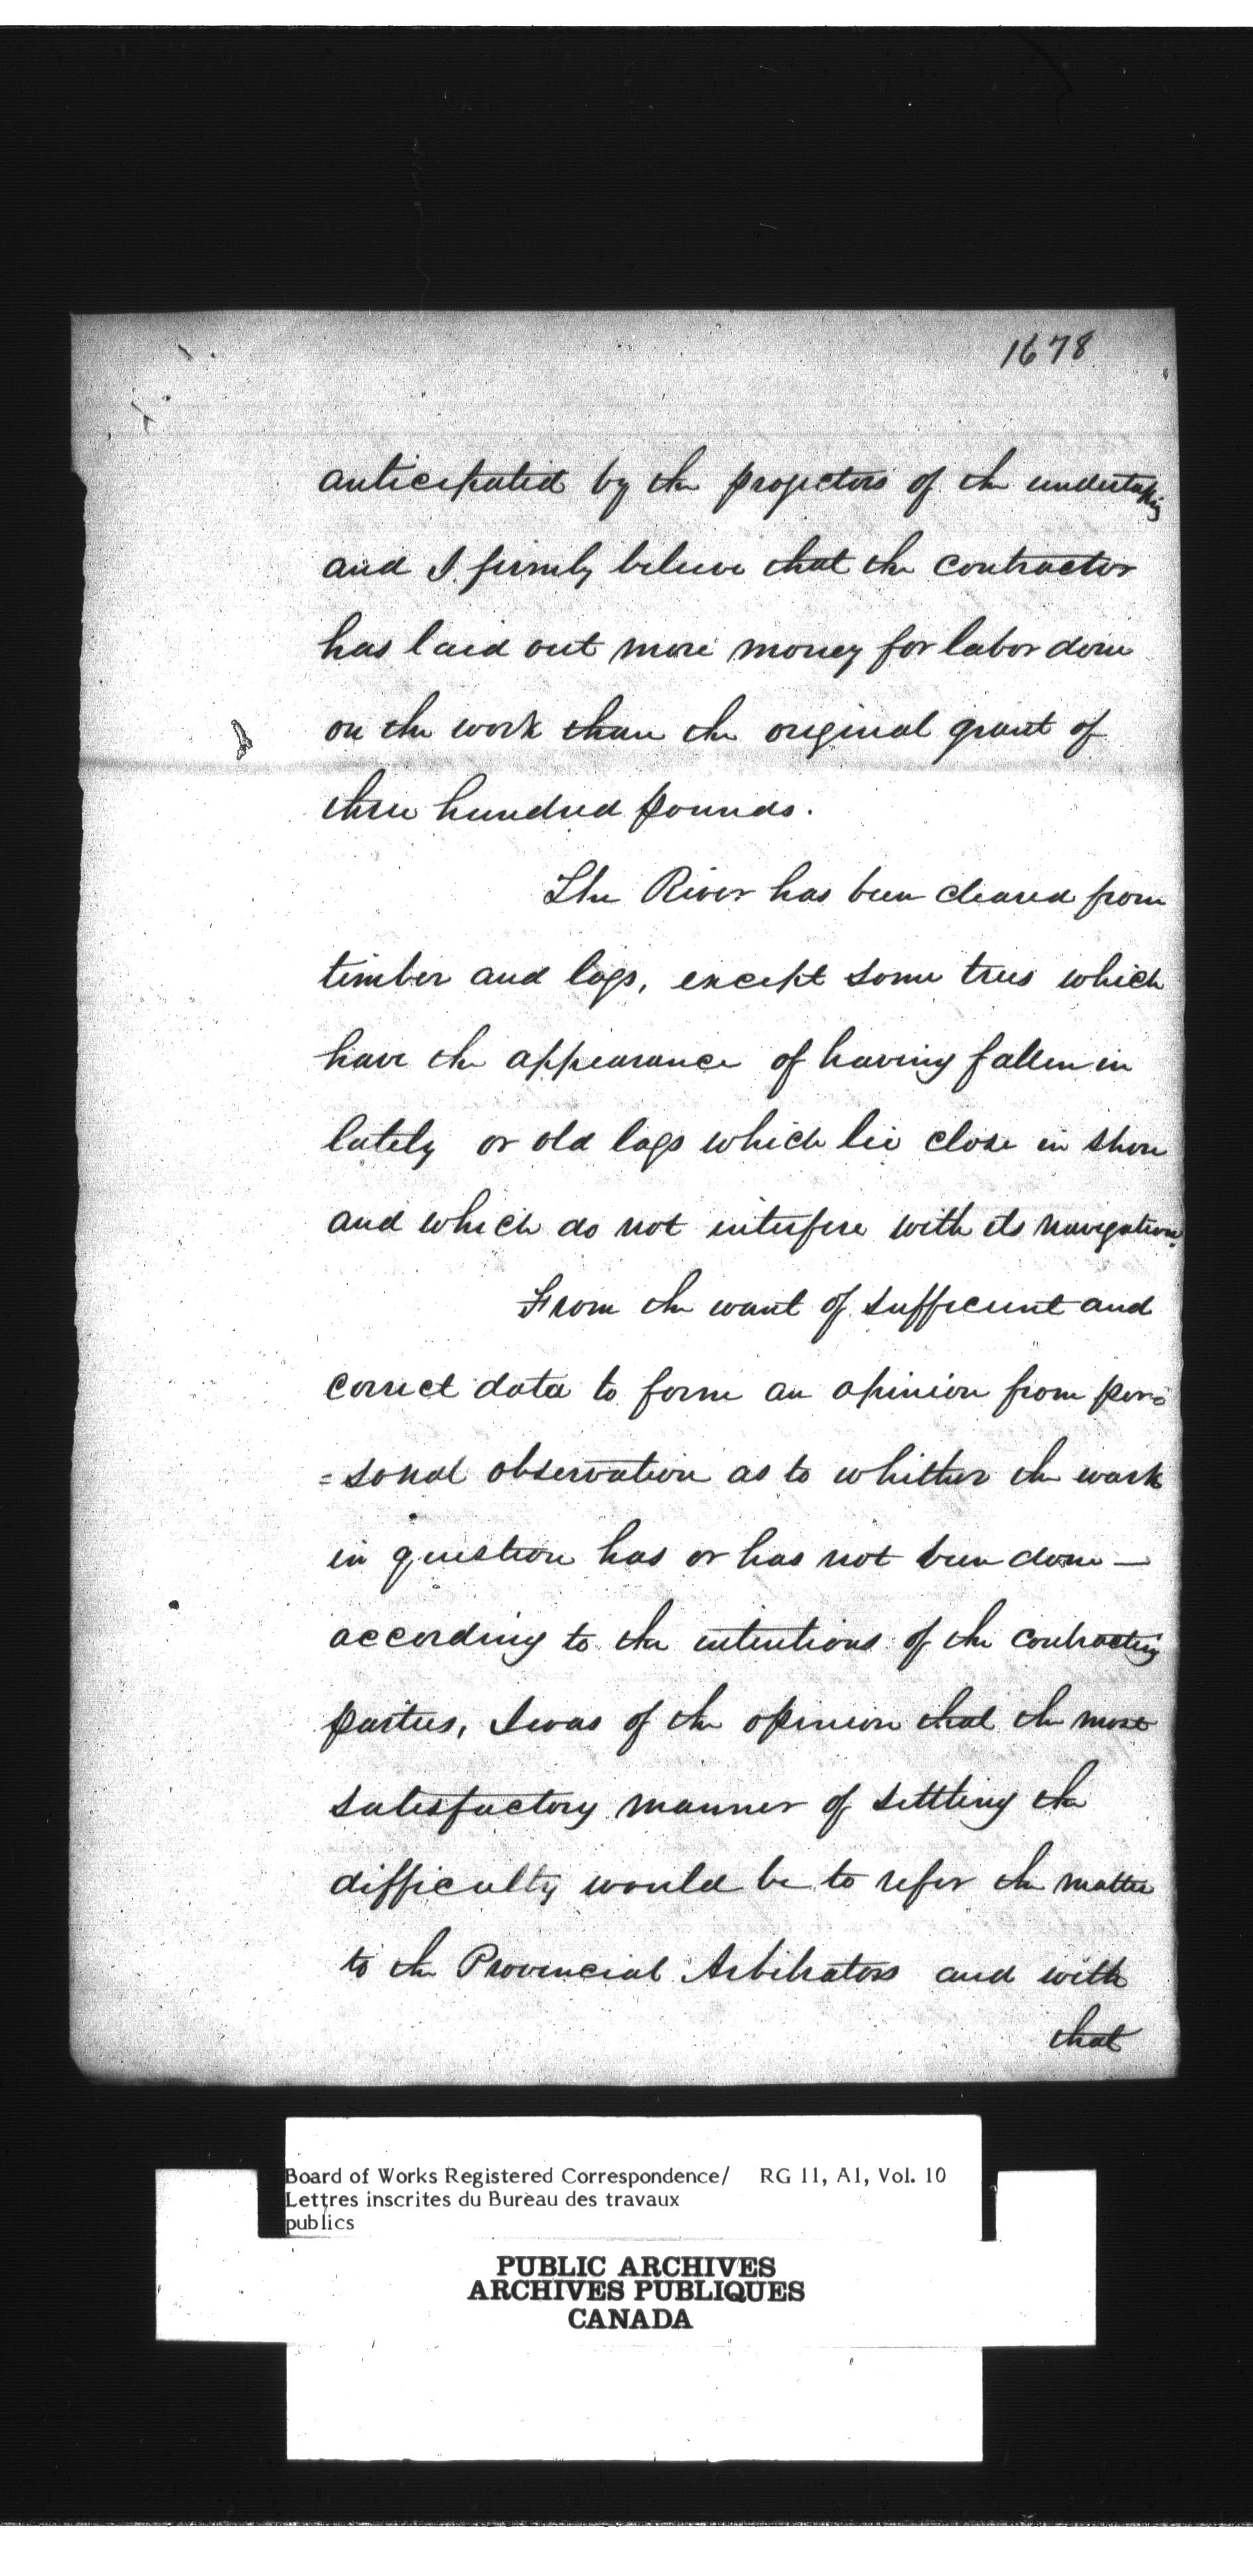 1678
anticipated by the projectors of the undertaking
and I firmly believe that the contractor
has laid out more money for labor done
on the work than the original grant of
three hundred pounds.
The River has been cleared from
timber and logs, except some trees which
have the appearance of having fallen in
lately or old logs which lie close in shore
and which do not interfere with its navigation.
From the want of sufficient and
correct data to form an opinion from per=
=sonal observation as to whether the work
in question has or has not been done —
according to the intentions of the contracting
parties, I was of the opinion that the most
satisfactory manner of settling the
difficulty would be to refer the matter
to the Provincial Arbitrators and with
that
Board of Works Registered Correspondence/ RG 11, A1, Vol. 10
Lettres inscrites du Bureau des travaux
publics
PUBLIC ARCHIVES
ARCHIVES PUBLIQUES
CANADA